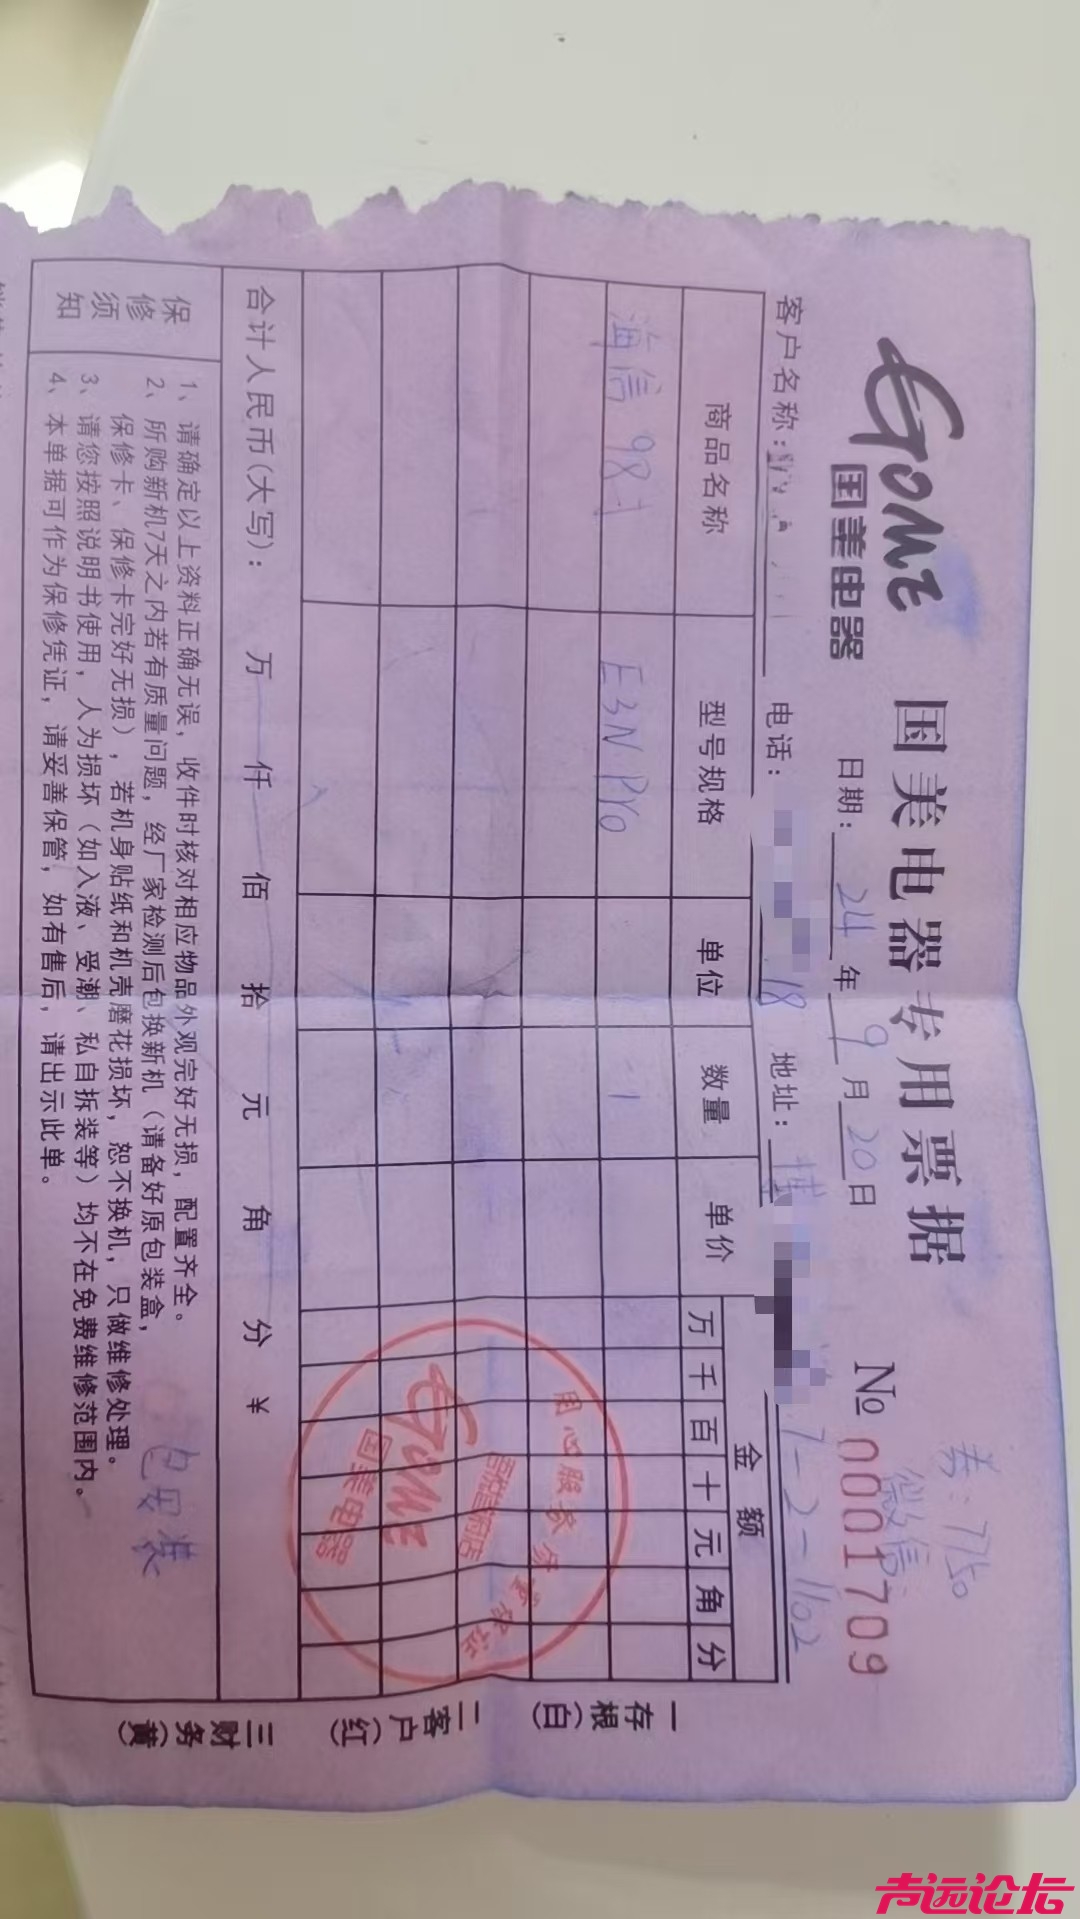 GOME
国美电器
国美电器专用票据
券:7750
微信
日期: 24 年 9 月 20 日
№ 0001709
客户名称:
电话: 18
地址: 1-2-1102
商品名称 型号规格 单位 数量 单价 金额
万 千 百 十 元 角 分
海信98寸 E3N Pro 1
合计人民币(大写): 万 仟 佰 拾 元 角 分 ¥
保修须知
1、请确定以上资料正确无误，收件时核对相应物品外观完好无损，配置齐全。
2、所购新机7天之内若有质量问题，经厂家检测后包换新机（请备好原包装盒，
保修卡、保修卡完好无损），若机身贴纸和机壳磨花损坏，恕不换机，只做维修处理。
3、请您按照说明书使用，人为损坏（如入液、受潮、私自拆装等）均不在免费维修范围内。
4、本单据可作为保修凭证，请妥善保管，如有售后，请出示此单。
包安装
一存根(白)
二客户(红)
三财务(黄)
用心服务
GOME
国美电器
声远论坛